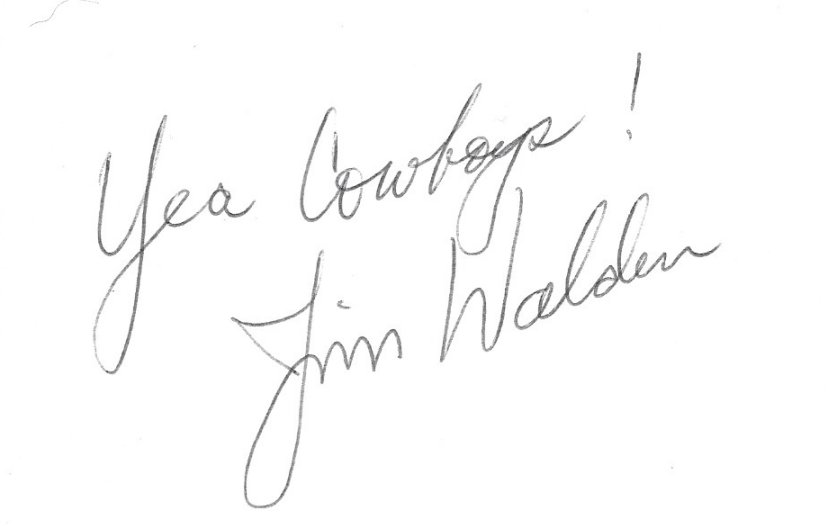 Yea Cowboys!
Jim Walden